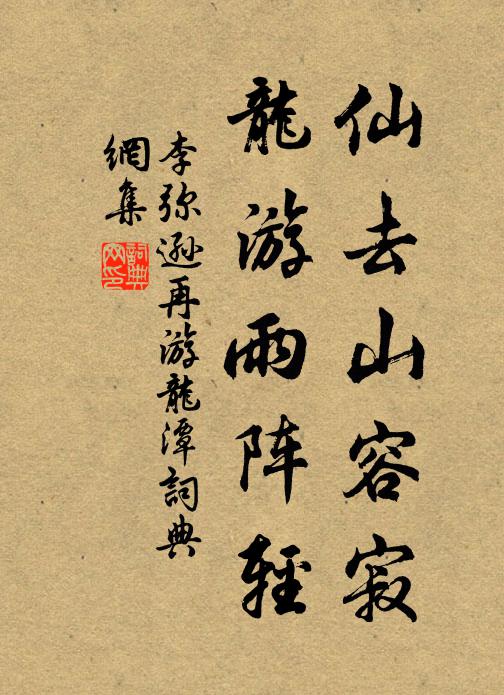 仙去山容寂
龍游雨阵輕
李弥遜再游龍潭詞典
網集
詞典网印